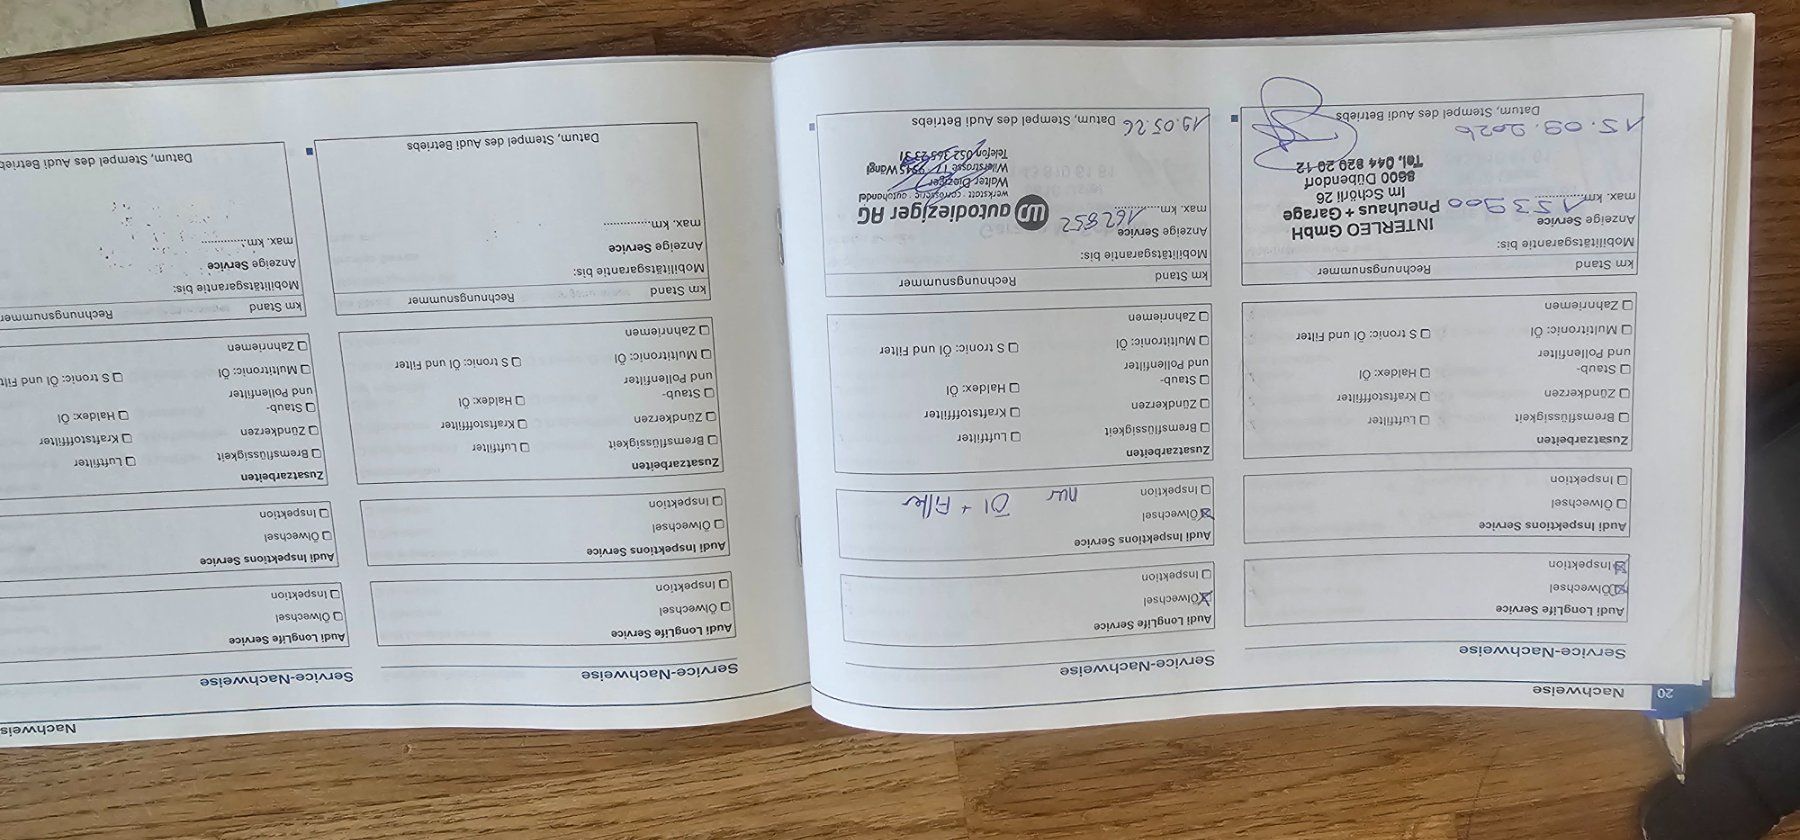 20
Nachweise
Service-Nachweise
Audi LongLife Service
Ölwechsel
Inspektion
Audi Inspektions Service
Ölwechsel
Inspektion
Zusatzarbeiten
Bremsflüssigkeit
Luftfilter
Zündkerzen
Kraftstofffilter
Staub-
und Pollenfilter
Haldex: Öl
Multitronic: Öl
S tronic: Öl und Filter
Zahnriemen
km Stand
Rechnungsnummer
Mobilitätsgarantie bis:
Anzeige Service
max. km
153900
INTERLEO GmbH
Pneuhaus + Garage
Im Schörli 26
8600 Dübendorf
Tel. 044 820 20 12
Datum, Stempel des Audi Betriebs
Service-Nachweise
Audi LongLife Service
Ölwechsel
Inspektion
Audi Inspektions Service
Ölwechsel
Inspektion
nur Öl + Filter
Zusatzarbeiten
Bremsflüssigkeit
Luftfilter
Zündkerzen
Kraftstofffilter
Staub-
und Pollenfilter
Haldex: Öl
Multitronic: Öl
S tronic: Öl und Filter
Zahnriemen
km Stand
Rechnungsnummer
Mobilitätsgarantie bis:
Anzeige Service
max. km
162852
autodieziger AG
werkstatt · carrosserie · autohandel
Walter Dieziger
Wilerstrasse 17 · 9545 Wängi
Telefon 052 365 23 31
19.05.26
Datum, Stempel des Audi Betriebs
Nachweise
Service-Nachweise
Audi LongLife Service
Ölwechsel
Inspektion
Audi Inspektions Service
Ölwechsel
Inspektion
Zusatzarbeiten
Bremsflüssigkeit
Luftfilter
Zündkerzen
Kraftstofffilter
Staub-
und Pollenfilter
Haldex: Öl
Multitronic: Öl
S tronic: Öl und Filter
Zahnriemen
km Stand
Rechnungsnummer
Mobilitätsgarantie bis:
Anzeige Service
max. km
Datum, Stempel des Audi Betriebs
Service-Nachweise
Audi LongLife Service
Ölwechsel
Inspektion
Audi Inspektions Service
Ölwechsel
Inspektion
Zusatzarbeiten
Bremsflüssigkeit
Luftfilter
Zündkerzen
Kraftstofffilter
Staub-
und Pollenfilter
Haldex: Öl
Multitronic: Öl
S tronic: Öl und Filt
Zahnriemen
km Stand
Rechnungsnummer
Mobilitätsgarantie bis:
Anzeige Service
max. km
Datum, Stempel des Audi Betrieb